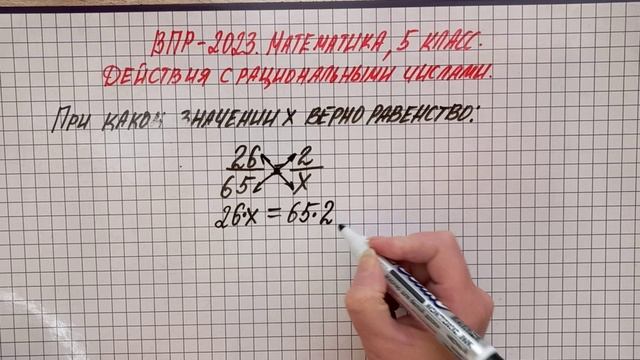 ВПР-2023. МАТЕМАТИКА, 5 КЛАСС.
ДЕЙСТВИЯ С РАЦИОНАЛЬНЫМИ ЧИСЛАМИ.
ПРИ КАКОМ ЗНАЧЕНИИ X ВЕРНО РАВЕНСТВО:
26/65 = 2/X
26·X = 65·2